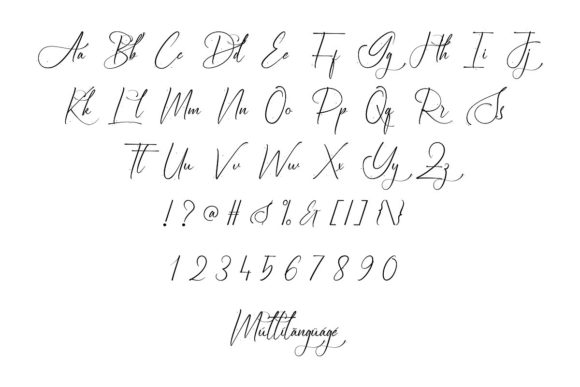 Aa Bb Cc Dd Ee Ff Gg Hh Ii Jj
Kk Ll Mm Nn Oo Pp Qq Rr Ss
Tt Uu Vv Ww Xx Yy Zz
! ? @ # $ % & [ | ] { \ }
1 2 3 4 5 6 7 8 9 0
Múltílãngüágé